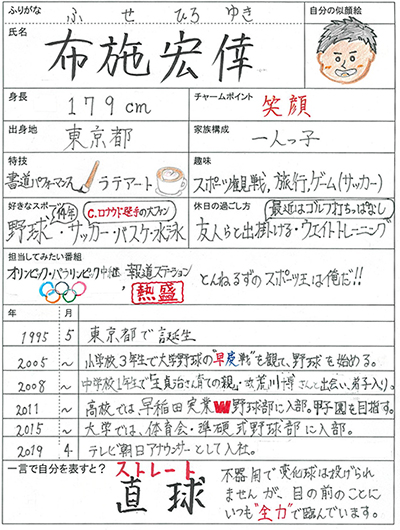 ふりがな ふせ ひろゆき
自分の似顔絵
氏名
布施宏倖
身長
179cm
チャームポイント
笑顔
出身地
東京都
家族構成
一人っ子
特技
書道パフォーマンス ラテアート
趣味
スポーツ観戦,旅行,ゲーム(サッカー)
好きなスポーツ
14年
C.ロナウド選手の大ファン
野球・サッカー・バスケ・水泳
休日の過ごし方
最近はゴルフ打ちっぱなし
友人らと出掛ける・ウエイトトレーニング
担当してみたい番組
オリンピック・パラリンピック中継
報道ステーション
熱盛
とんねるずのスポーツ王は俺だ!!
年 月
1995 5 東京都で誕生
2005 ~ 小学校3年生で大学野球の"早慶戦"を観て、野球を始める。
2008 ~ 中学校1年生で"王貞治さん育ての親"・故荒川博さんと出会い、弟子入り。
2011 ~ 高校では、早稲田実業W野球部に入部。甲子園を目指す。
2015 ~ 大学では、体育会・準硬式野球部に入部。
2019 4 テレビ朝日アナウンサーとして入社。
一言で自分を表すと?
ストレート
直球
不器用で変化球は投げられ
ませんが、目の前のことに
いつも"全力"で臨んでいます。